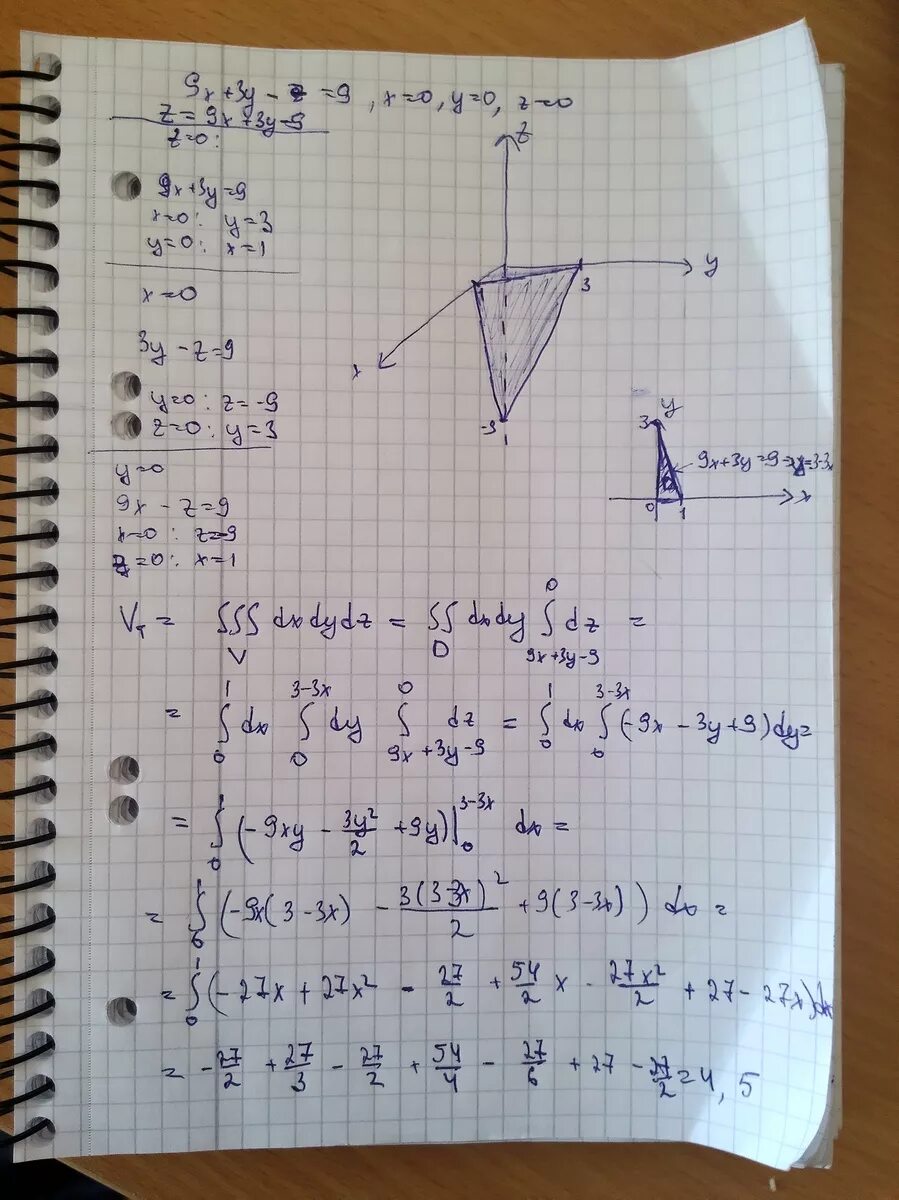 9x+3y-z=9, x=0, y=0, z=0
z=9x+3y-9
z=0:
9x+3y=9
x=0: y=3
y=0: x=1
x=0
3y-z=9
y=0: z=-9
z=0: y=3
y=0
9x-z=9
x=0: z=-9
z=0: x=1
z
y
3
x
-9
3 y
9x+3y=9 => y=3-3x
D
0 1 x
V_T = ∭_V dxdydz = ∬_D dxdy ∫_{9x+3y-9}^{0} dz =
= ∫_0^1 dx ∫_0^{3-3x} dy ∫_{9x+3y-9}^{0} dz = ∫_0^1 dx ∫_0^{3-3x} (-9x-3y+9)dy =
= ∫_0^1 (-9xy - 3y²/2 + 9y)|_0^{3-3x} dx =
= ∫_0^1 (-9x(3-3x) - 3(3-3x)²/2 + 9(3-3x)) dx =
= ∫_0^1 (-27x + 27x² - 27/2 + 54/2 x - 27x²/2 + 27 - 27x)dx
= -27/2 + 27/3 - 27/2 + 54/4 - 27/6 + 27 - 27/2 = 4,5